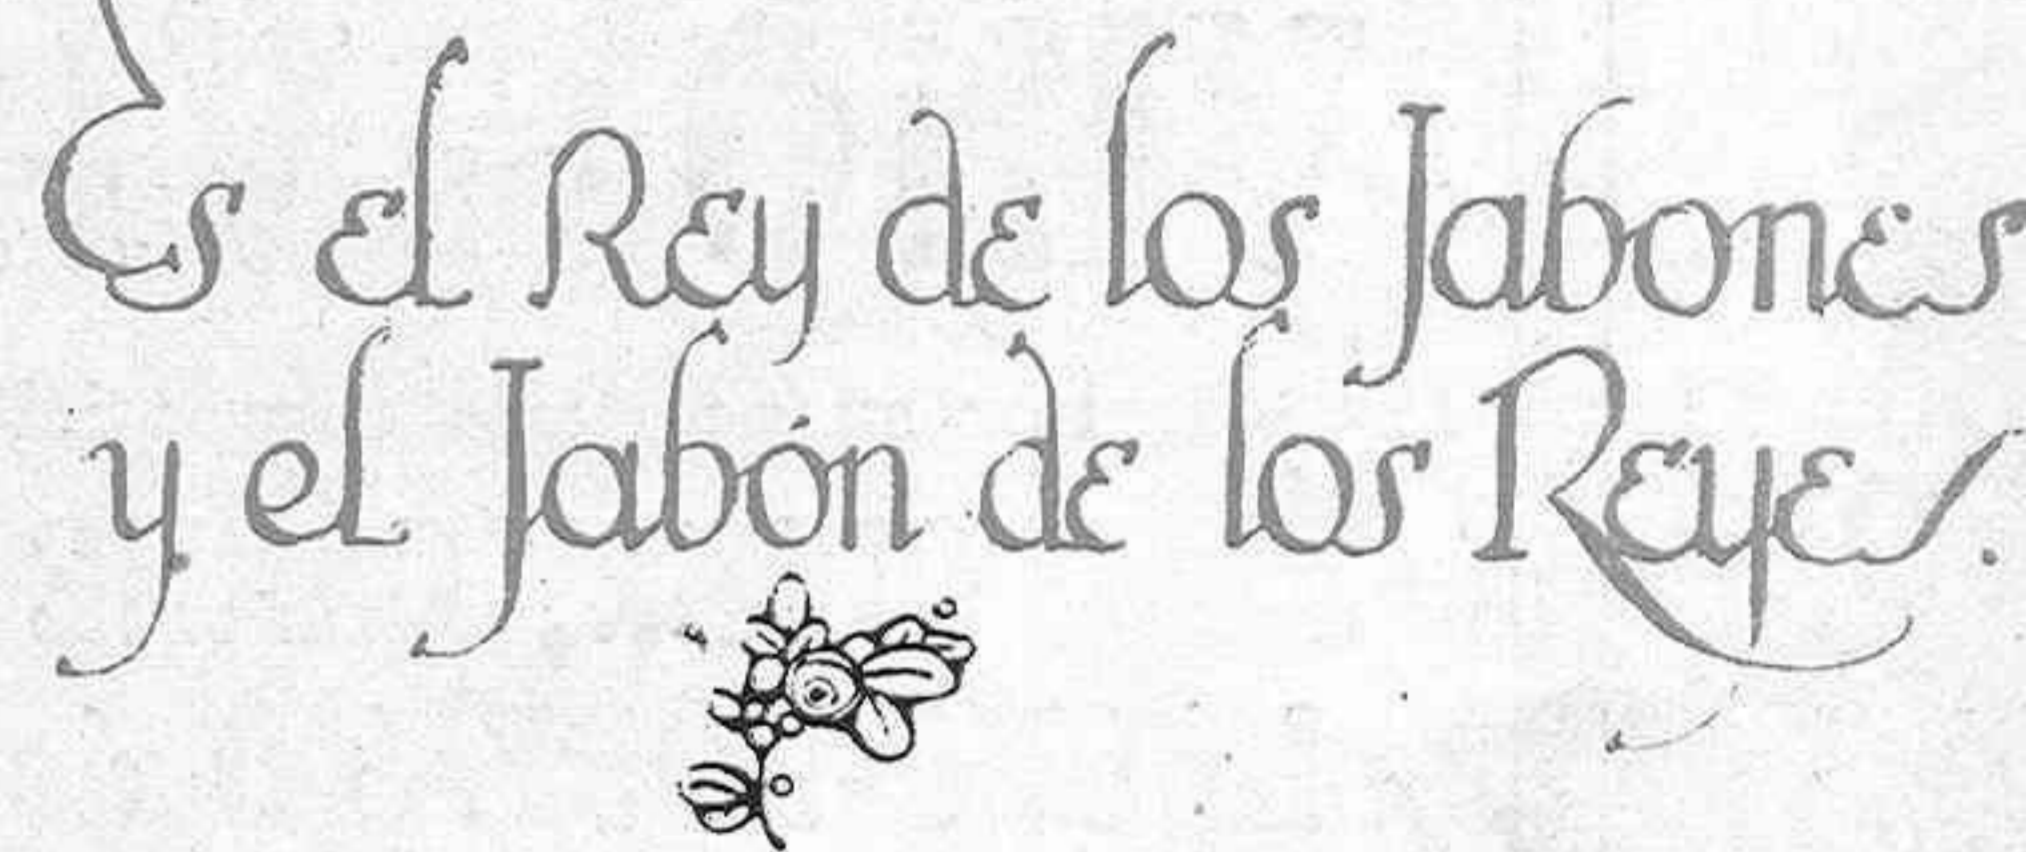 Es el Rey de los Jabones
y el Jabón de los Reyes.